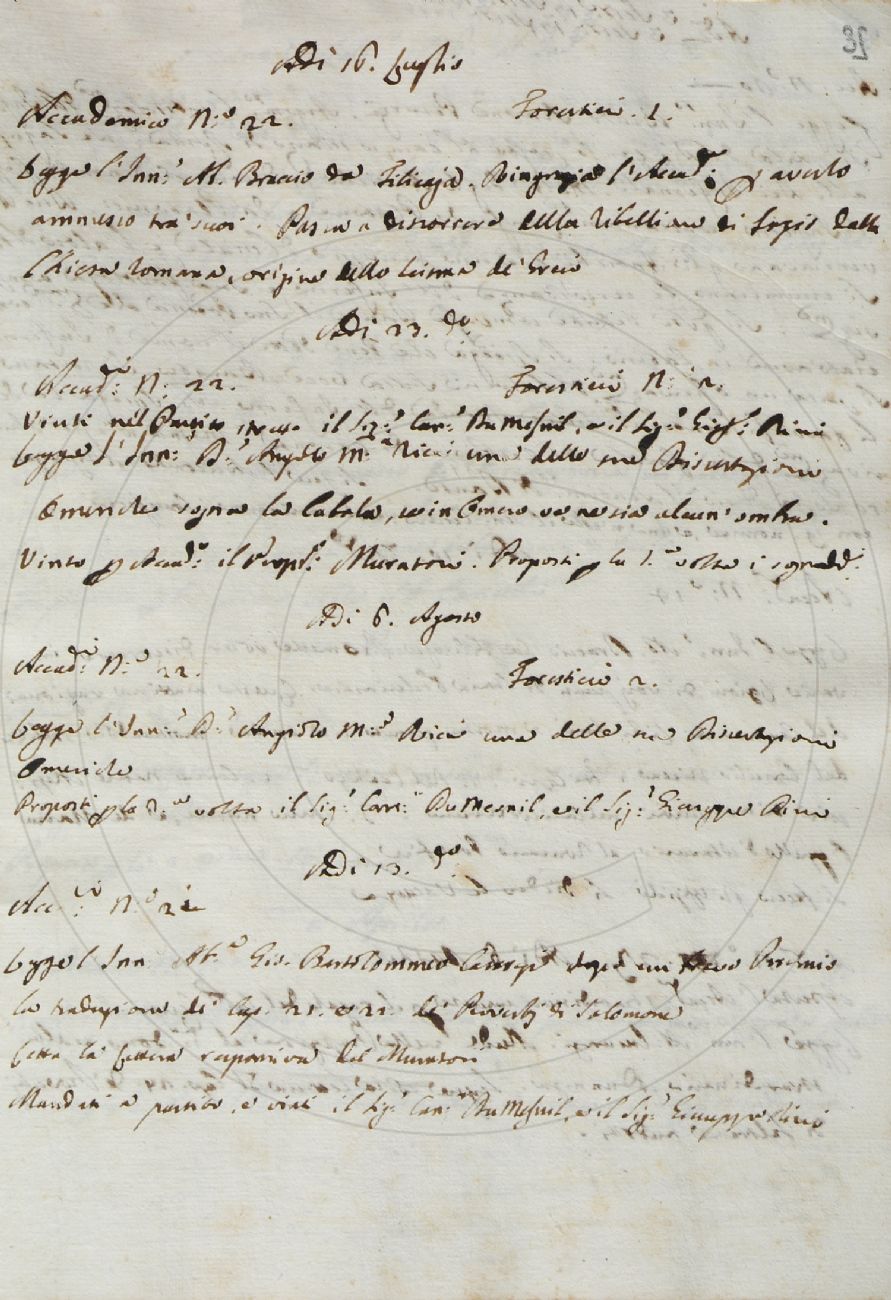 Adi 16. Luglio
Accademici N.º 22. Forestieri. 1.
Legge l'Inn.º Ab. Braccio da Filicaja. Ringrazia l'Accad.ª p averlo
ammesso tra' suoi. Passa a discorrere della ribellione di dalla
Chiesa romana, origine dello scisma de' Greci
Adi 23. dº.
Accad.ci N. 22. Forestieri N. 2.
Vinti nel il Sig.r Cav.r DuMesnil, e il Sig.r Gius.e Rini
Legge l'Inn.º D.r Angelo M.ª Ricci una delle sue Dissertazioni
Omeriche sopra la
Vinto p Accad.co il Muratori. Proposti p la 1.ª volta i sopradd.i
Adi 6. Agosto
Accad.ci N.º 22. Forestieri 2.
Legge l'Inn.º D.r Angiolo M.ª Ricci una delle sue Dissertazioni
Omeriche
Proposti p la 2.ª volta il Sig.r Cav.r DuMesnil, e il Sig.r Giuseppe Rini
Adi 13. dº.
Acc.ci N.º 22
Legge l'Inn. Ab.e Gio. Bartolommeo dopo un breve Proemio
la traduzione de' Cap. 21. e 22. de' Proverbj di Salomone
Letta la lettera responsiva del Muratori
Mandati a partito, e vinti il Sig.r Cav.r DuMesnil, e il Sig.r Giuseppe Rini